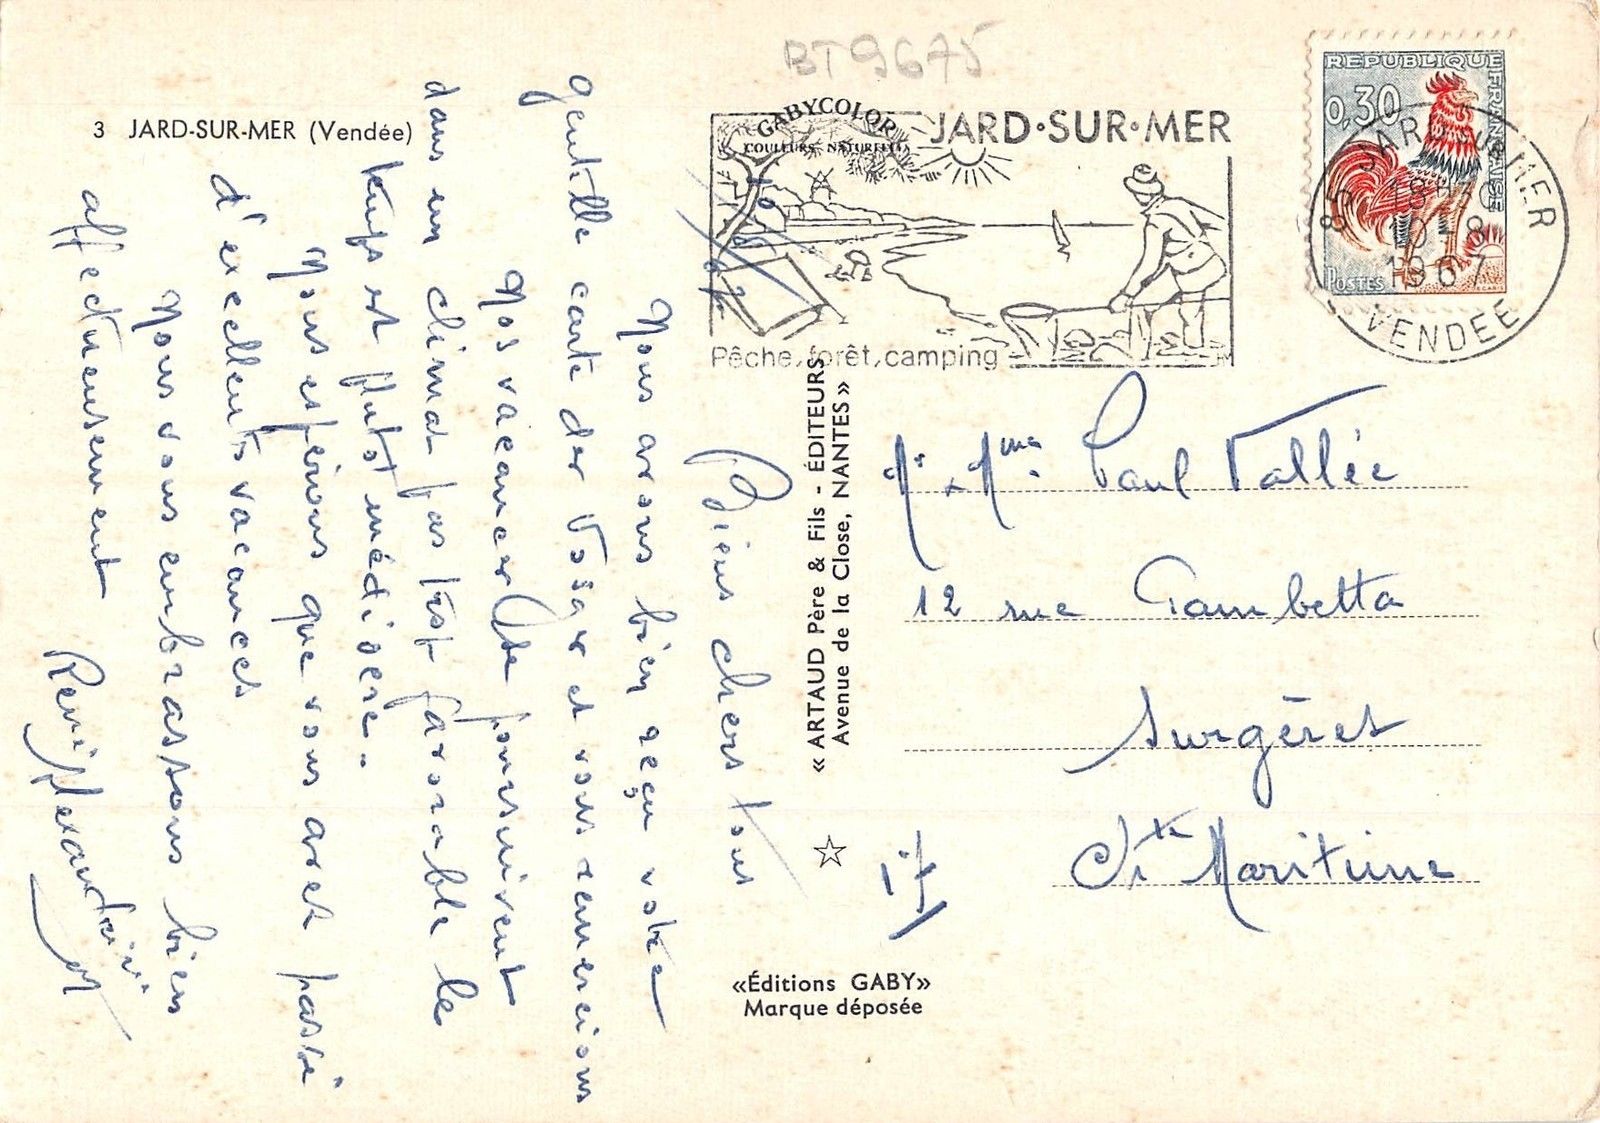 BT9675
3 JARD-SUR-MER (Vendée)
GABYCOLOR
COULEURS NATURELLES
JARD·SUR·MER
Pêche, forêt, camping
REPUBLIQUE FRANÇAISE
0,30
POSTES
85 JARD SUR MER
10-8
1967
VENDEE
10/8/67
Biens chers tous
Nous avons bien reçu votre
gentille carte des Vosges et vous remercions
Nos vacances se poursuivent
dans un climat pas trop favorable le
temps est plutôt médiocre.
Nous espérons que vous avez passé
d'excellents vacances
Nous vous embrassons bien
affectueusement
« ARTAUD Père & Fils - ÉDITEURS
Avenue de la Close, NANTES »
«Éditions GABY»
Marque déposée
Mr & Mme Paul Vallée
12 rue Gambetta
Surgères
17
Chte Maritime